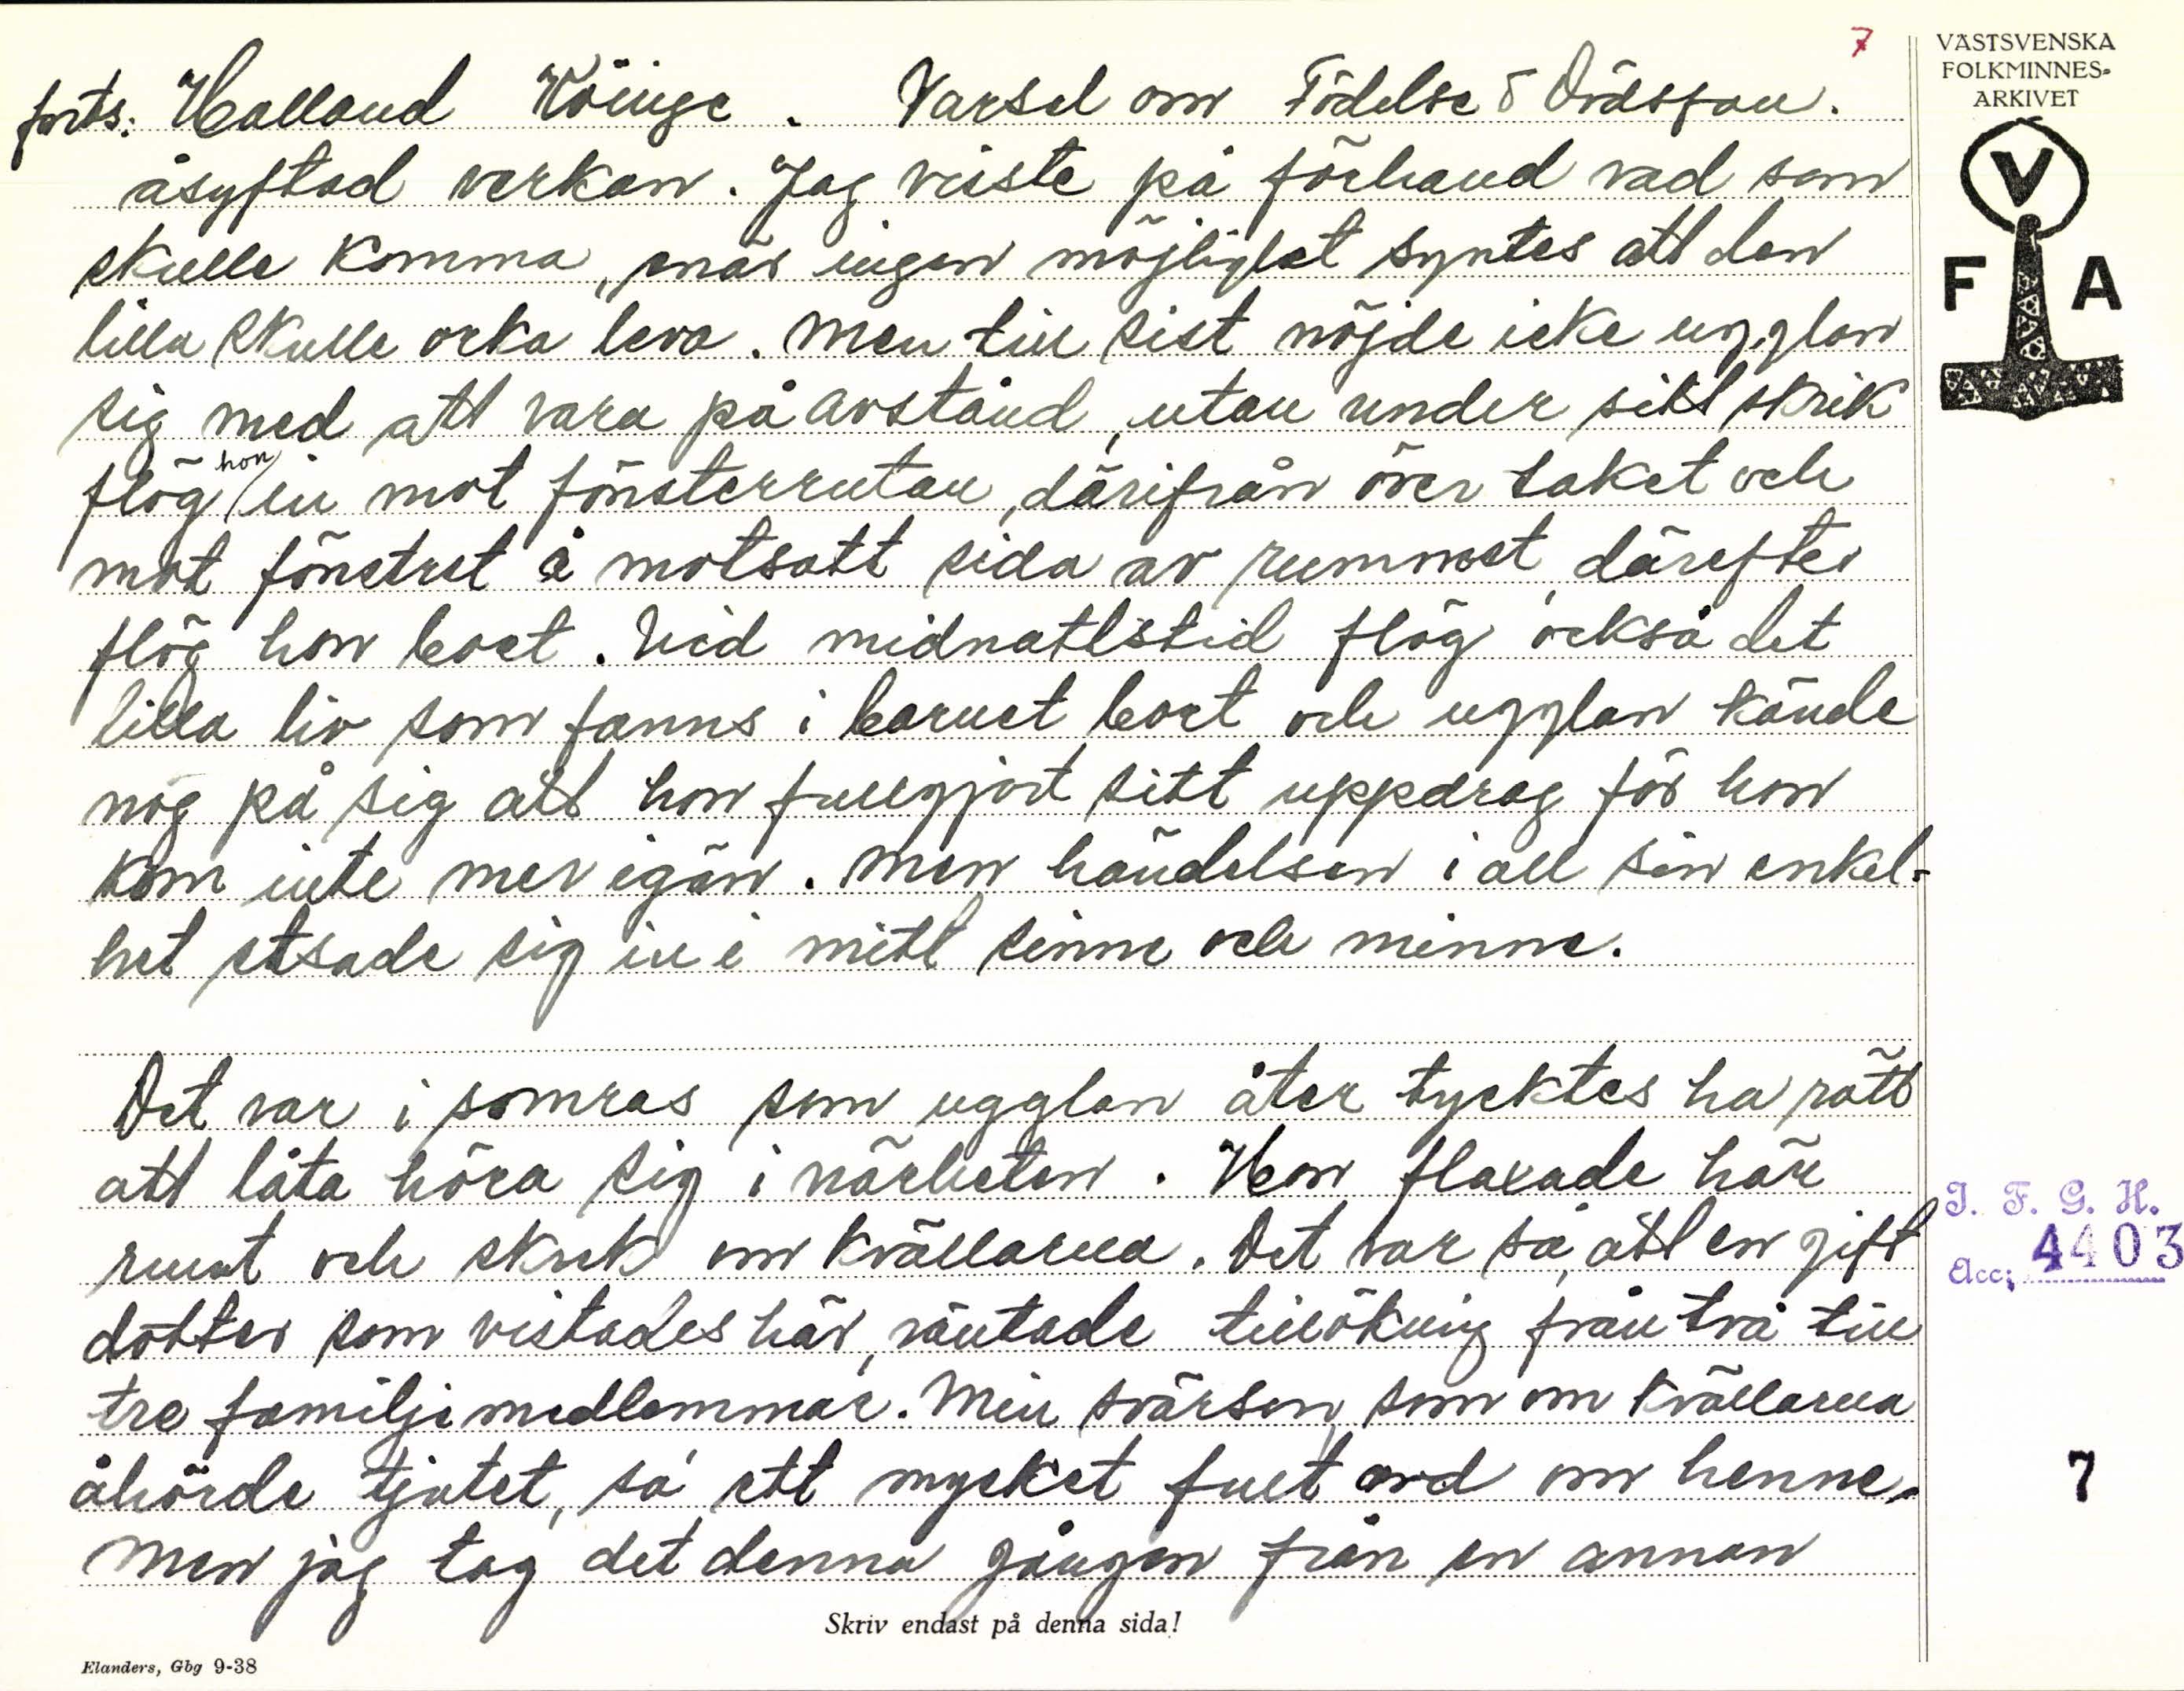 7
VÄSTSVENSKA
FOLKMINNES-
ARKIVET
V
F A
forts. Halland Köinge. Varsel om Födelse o Dödsfall.
åsyftad verkan. Jag visste på förhand vad som
skulle komma, enär ingen möjlighet syntes att den
lilla skulle orka leva. Men till sist nöjde icke ugglan
sig med att vara på avstånd, utan under sitt skrik
flög hon in mot fönsterrutan, därifrån över taket och
mot fönstret å motsatt sida av rummet, därefter
flög hon bort. Vid midnattstid flög också det
lilla liv som fanns i barnet bort och ugglan kände
nog på sig att hon fullgjort sitt uppdrag för hon
kom inte mer igän. Men händelsen i all sin enkel-
het etsade sig in i mitt sinne och minne.
Det var i somras som ugglan åter tycktes ha rätt
att låta höra sig i närheten. Hon flaxade här
runt och skrek om kvällarna. Det var så, att en gift
dotter som vistades här, väntade tillökning från två till
tre familjemedlemmar. Min svärson, som om kvällarna
åhörde tjutet, sa ett mycket fult ord om henne,
Men jag tog det denna gången från en annan
I. F. G. H.
Acc: 4403
7
Skriv endast på denna sida!
Elanders, Gbg 9-38